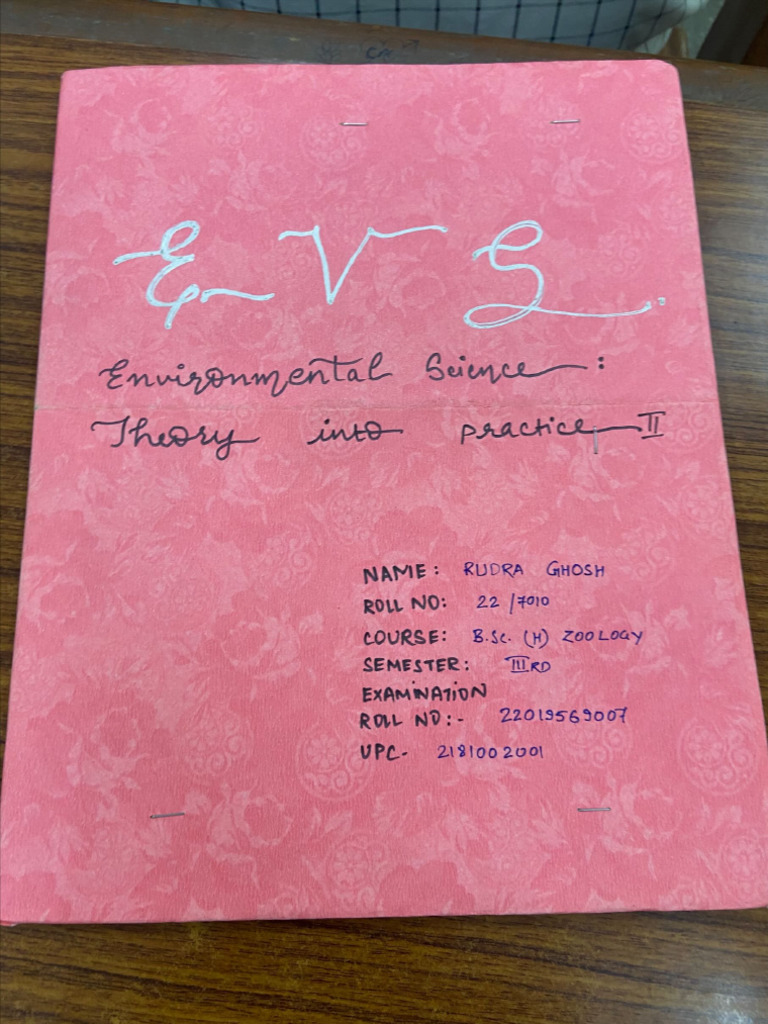 EVS..
Environmental Science:
Theory into practice-II
NAME: RUDRA GHOSH
ROLL NO: 22/7010
COURSE: B.Sc. (H) ZOOLOGY
SEMESTER: IIIRD
EXAMINATION
ROLL NO:- 22019569007
UPC- 2181002001